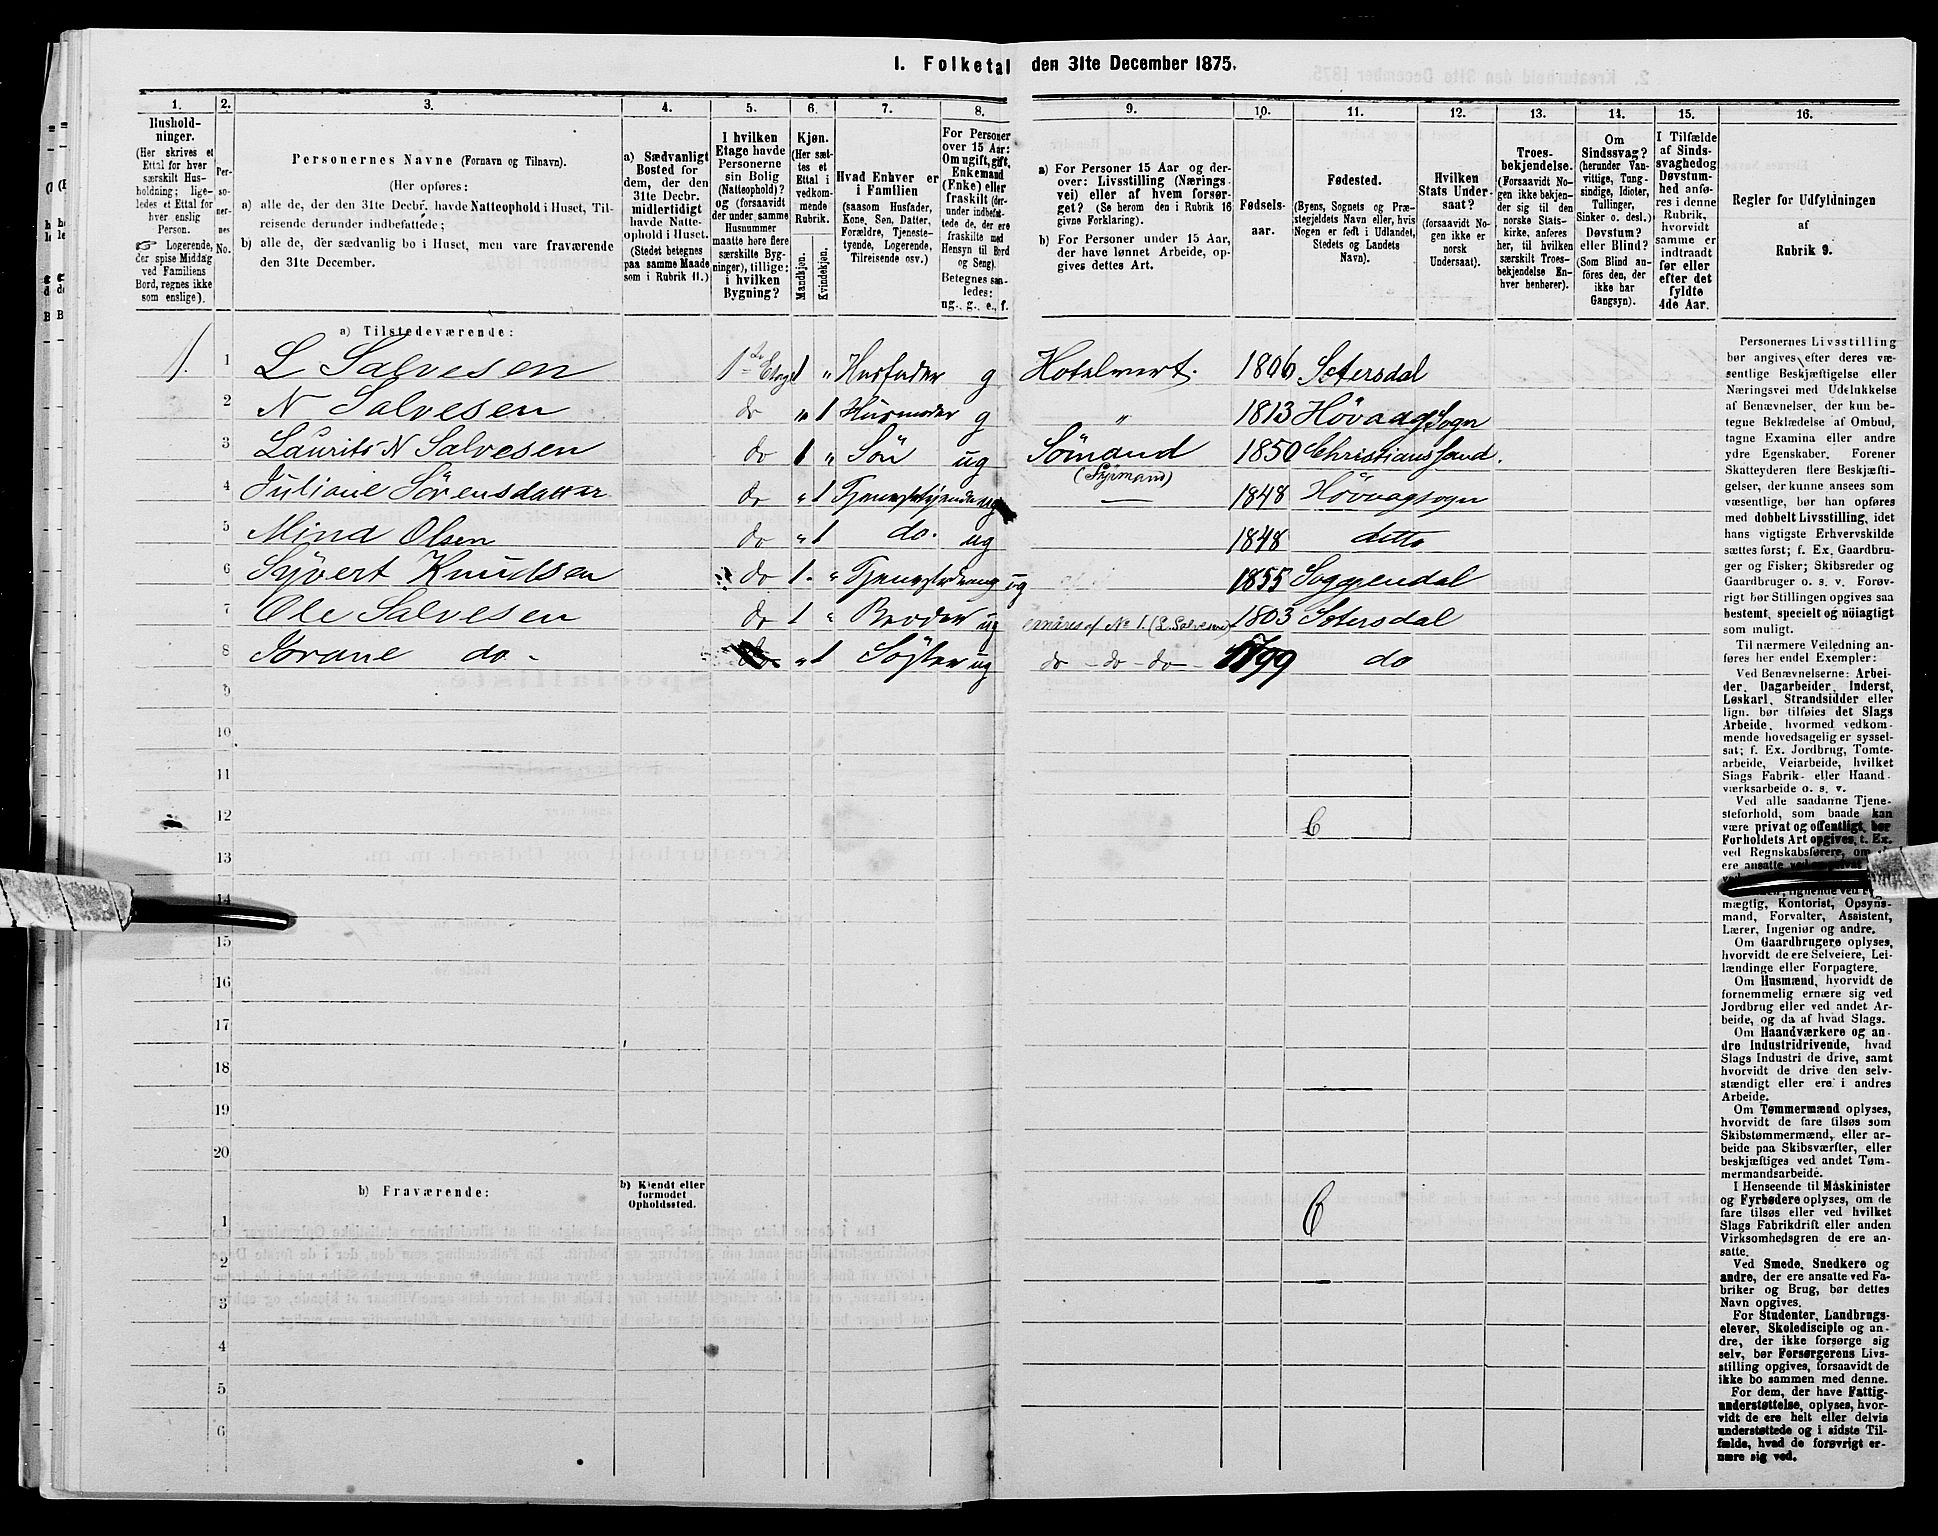 1. Folketal den 31te December 1875.
1. 2. 3. 4. 5. 6. 7. 8. 9. 10. 11. 12. 13. 14. 15. 16.
Hushold-
ninger.
(Her skrives et
Ettal for hver
særskilt Hus-
holdning; lige-
ledes et Ettal for
hver enslig
Person.
☞ Logerende,
der spise Middag
ved Familiens
Bord, regnes ikke
som enslige).
Per-
so-
ner-
nes
No.
Personernes Navne (Fornavn og Tilnavn).
(Her opføres:
a) alle de, der den 31te Decbr. havde Natteophold i Huset, Til-
reisende derunder indbefattede;
b) alle de, der sædvanlig bo i Huset, men vare fraværende
den 31te December.
a) Sædvanligt
Bosted for
dem, der den
31te Decbr.
midlertidigt
havde Natte-
ophold i Huset.
(Stedet betegnes
paa samme Maade
som i Rubrik 11.)
I hvilken
Etage havde
Personerne
sin Bolig
(Natteophold)?
og (forsaavidt
der under samme
Husnummer
maatte høre flere
særskilte Byg-
ninger), tillige:
i hvilken
Bygning?
Kjøn.
(Her sæt-
tes et
Ettal i
vedkom-
mende
Rubrik.
Mandkjøn.
Kvindekjøn.
Hvad Enhver er
i Familien
(saasom Husfader,
Kone, Søn, Datter,
Forældre, Tjeneste-
tyende, Logerende,
Tilreisende osv.)
For Personer
over 15 Aar:
Om ugift, gift,
Enkemand
(Enke) eller
fraskilt (der-
under indbefat-
tede de, der ere
fraskilte med
Hensyn til Bord
og Seng).
Betegnes saa-
ledes:
ug., g., e., f.
a) For Personer 15 Aar og der-
over: Livsstilling (Nærings-
vei) eller af hvem forsør-
get? (Se herom den i Rubrik 16
givne Forklaring).
b) For Personer under 15 Aar,
der have lønnet Arbeide, op-
gives dettes Art.
Fødsels-
aar.
Fødested.
(Byens, Sognets og Præ-
stegjeldets Navn eller, hvis
Nogen er født i Udlandet,
Stedets og Landets
Navn).
Hvilken
Stats Under-
saat?
(forsaavidt No-
gen ikke er
norsk
Undersaat).
Troes-
bekjendelse.
(Forsaavidt No-
gen ikke bekjen-
der sig til den
norske Stats-
kirke, anføres
her, til hvilken
særskilt Troes-
bekjendelse En-
hver benhører).
Om
Sindssvag?
(herunder Van-
vittige, Tung-
sindige, Idioter,
Tullinger,
Sinker o. desl.)
Døvstum?
eller Blind?
(Som Blind an-
føres den, der
ikke har
Gangsyn).
I Tilfælde
af Sinds-
svaghed og
Døvstum-
hed anfø-
res i denne
Rubrik,
hvorvidt
samme er
indtraadt
før eller
efter det
fyldte
4de Aar.
Regler for Udfyldningen
af
Rubrik 9.
a) Tilstedeværende:
1. 1 L Salvesen 1ste Etage 1 " Husfader g Hotelvert. 1806 Setersdal
2 N Salvesen do " 1 Husmoder g " 1813 Høvaag Sogn
3 Laurits N Salvesen do 1 " Søn ug Sømand 1850 Christianssand.
(Styrmand)
4 Juliane Sørensdatter do " 1 Tjenestetyende ug — 1848 Høvaagsogn
5 Mina Olsen do " 1 do. ug 1848 ditto
6 Syvert Knudsen do 1. " Tjenestedreng ug 1855 Soggendal
7 Ole Salvesen do 1 " Broder ug ernæres af No 1. (L. Salvesen) 1803 Setersdal
8 Jorane do - do " 1 Søster ug do - do - do - 1799 do
9
10
11
12 6
13
14
15
16
17
18
19
20
b) Fraværende:
b) Kjendt eller
formodet
Opholdssted.
1
2
3
4
5
6
Personernes Livsstilling
bør angives efter deres væ-
sentlige Beskjæftigelse eller
Næringsvei med Udelukkelse
af Benævnelser, der kun be-
tegne Beklædelse af Ombud,
tagne Examina eller andre
ydre Egenskaber. Forener
Skatteyderen flere Beskjæfti-
gelser, der kunne ansees som
væsentlige, bør han opføres
med dobbelt Livsstilling, idet
hans vigtigste Erhvervskilde
sættes først; f. Ex. Gaardbru-
ger og Fisker; Skibsreder og
Gaardbruger o. s. v. Forøv-
rigt bør Stillingen opgives saa
bestemt, specielt og nøiagtigt
som muligt.
Til nærmere Veiledning an-
føres her endel Exempler:
Ved Benævnelserne: Arbei-
der, Dagarbeider, Inderst,
Løskarl, Strandsidder eller
lign. bør tilføies det Slags
Arbeide, hvormed vedkom-
mende hovedsagelig er syssel-
sat; f. Ex. Jordbrug, Tomte-
arbeide, Veiarbeide, hvilket
Slags Fabrik- eller Haand-
værksarbeide o. s. v.
Ved alle saadanne Tjene-
steforhold, som baade kan
være privat og offentligt, bør
Forholdets Art opgives, t. Ex.
ved Regnskabsførere, om
ere ansatte ved
mægtig, Kontorist, Opsyns-
mand, Forvalter, Assistent,
Lærer, Ingeniør og andre.
Om Gaardbrugere oplyses,
hvorvidt de ere Selveiere, Lei-
lændinge eller Forpagtere.
Om Husmænd, hvorvidt de
fornemmelig ernære sig ved
Jordbrug eller ved andet Ar-
beide, og da af hvad Slags.
Om Haandværkere og an-
dre Industridrivende, hvad
Slags Industri de drive, samt
hvorvidt de drive den selv-
stændigt eller ere i andres
Arbeide.
Om Tømmermænd oplyses,
hvorvidt de fare tilsøs som
Skibstømmermænd, eller ar-
beide paa Skibsværfter, eller
beskjæftiges ved andet Tøm-
mermandsarbeide.
I Henseende til Maskinister
og Fyrbødere oplyses, om de
fare tilsøs eller ved hvilket
Slags Fabrikdrift eller anden
Virksomhedsgren de ere an-
satte.
Ved Smede, Snedkere og
andre, der ere ansatte ved Fa-
briker og Brug, bør dettes
Navn opgives.
For Studenter, Landbrugs-
elever, Skoledisciple og an-
dre, der ikke forsørge sig
selv, bør Forsørgerens Livs-
stilling opgives, forsaavidt de
ikke bo sammen med denne.
For dem, der have Fattig-
understøttelse, oplyses, hvor-
vidt de ere helt eller delvis
understøttede og i sidste Til-
fælde, hvad de forøvrigt er-
nære sig ved.